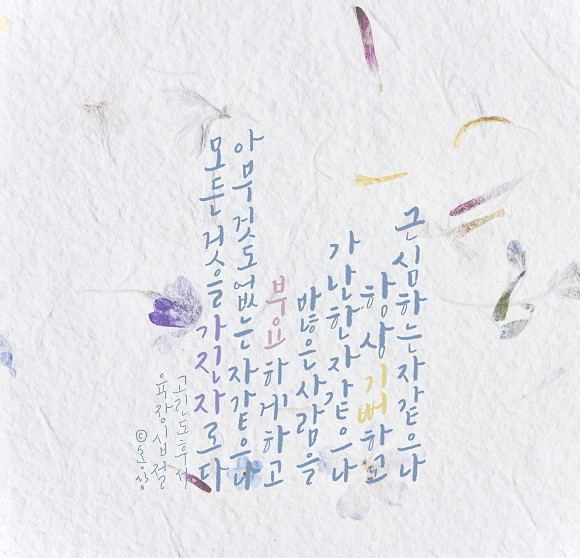 근심하는자같으나
항상기뻐하고
가난한자같으나
많은사람을
부요하게하고
아무것도없는자같으나
모든것을가진자로다
고린도후서
육장십절